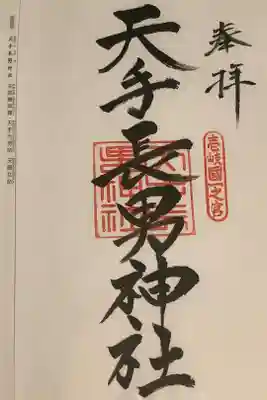 奉拝
壱岐國之宮
天手長男神社